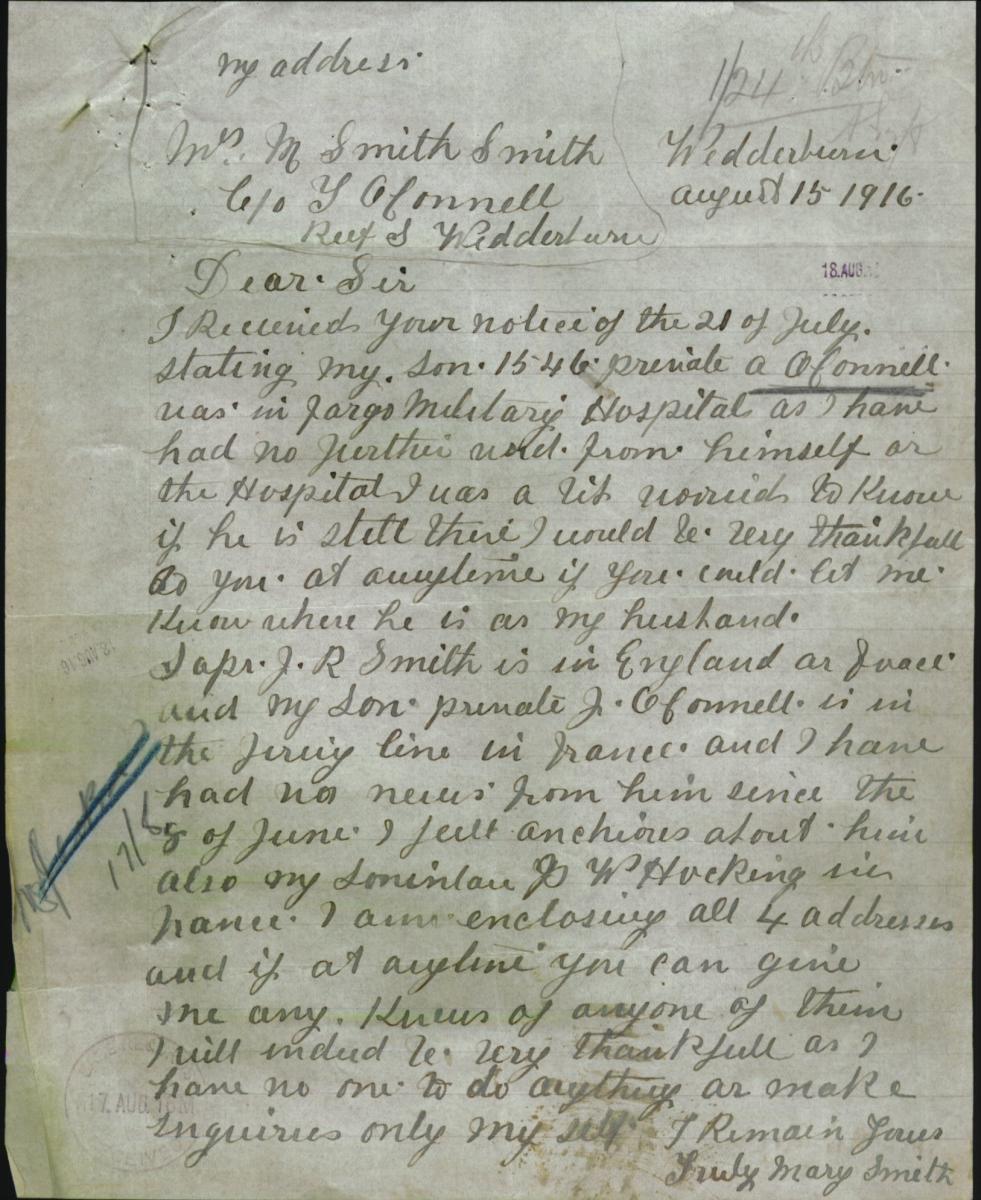 my address
1/24th Btn
Mrs. M Smith Smith
C/o T OConnell
Reef S Wedderburn
Wedderburn
august 15 1916
18.AUG.
Dear Sir
I Received your notice of the 21 of July.
stating my. son. 1546 private a OConnell.
was in fargo Military Hospital as I have
had no further word. from himself or
the Hospital I was a bit worried to Know
if he is still there I would be. very thankfull
to you. at anytime if you could let me
Know where he is as my husband.
Sapr. J. R Smith is in England or France
and my son private J. OConnell is in
the firing line in france and I have
had no news from him since the
5 of June I feel anchious about him
also my soninlaw P W Hocking in
france. I am enclosing all 4 addresses
and if at anytime you can give
me any. Knews of anyone of them
I will indeed be. very thankfull as I
have no one to do anything or make
Enquiries only my self I Remain Yours
Truly Mary Smith
18 AUG 16
17/8
17 AUG. 1916